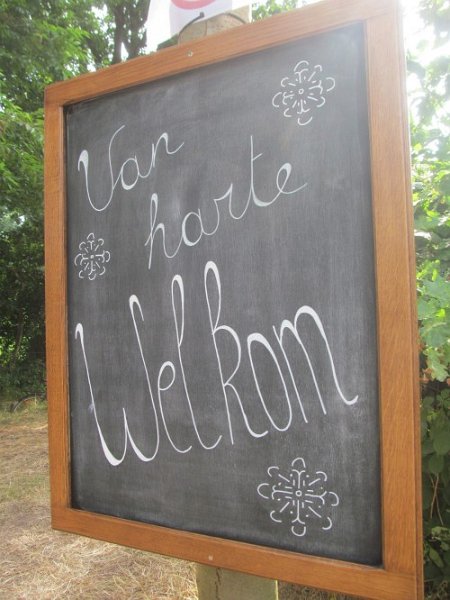 Van
harte
Welkom